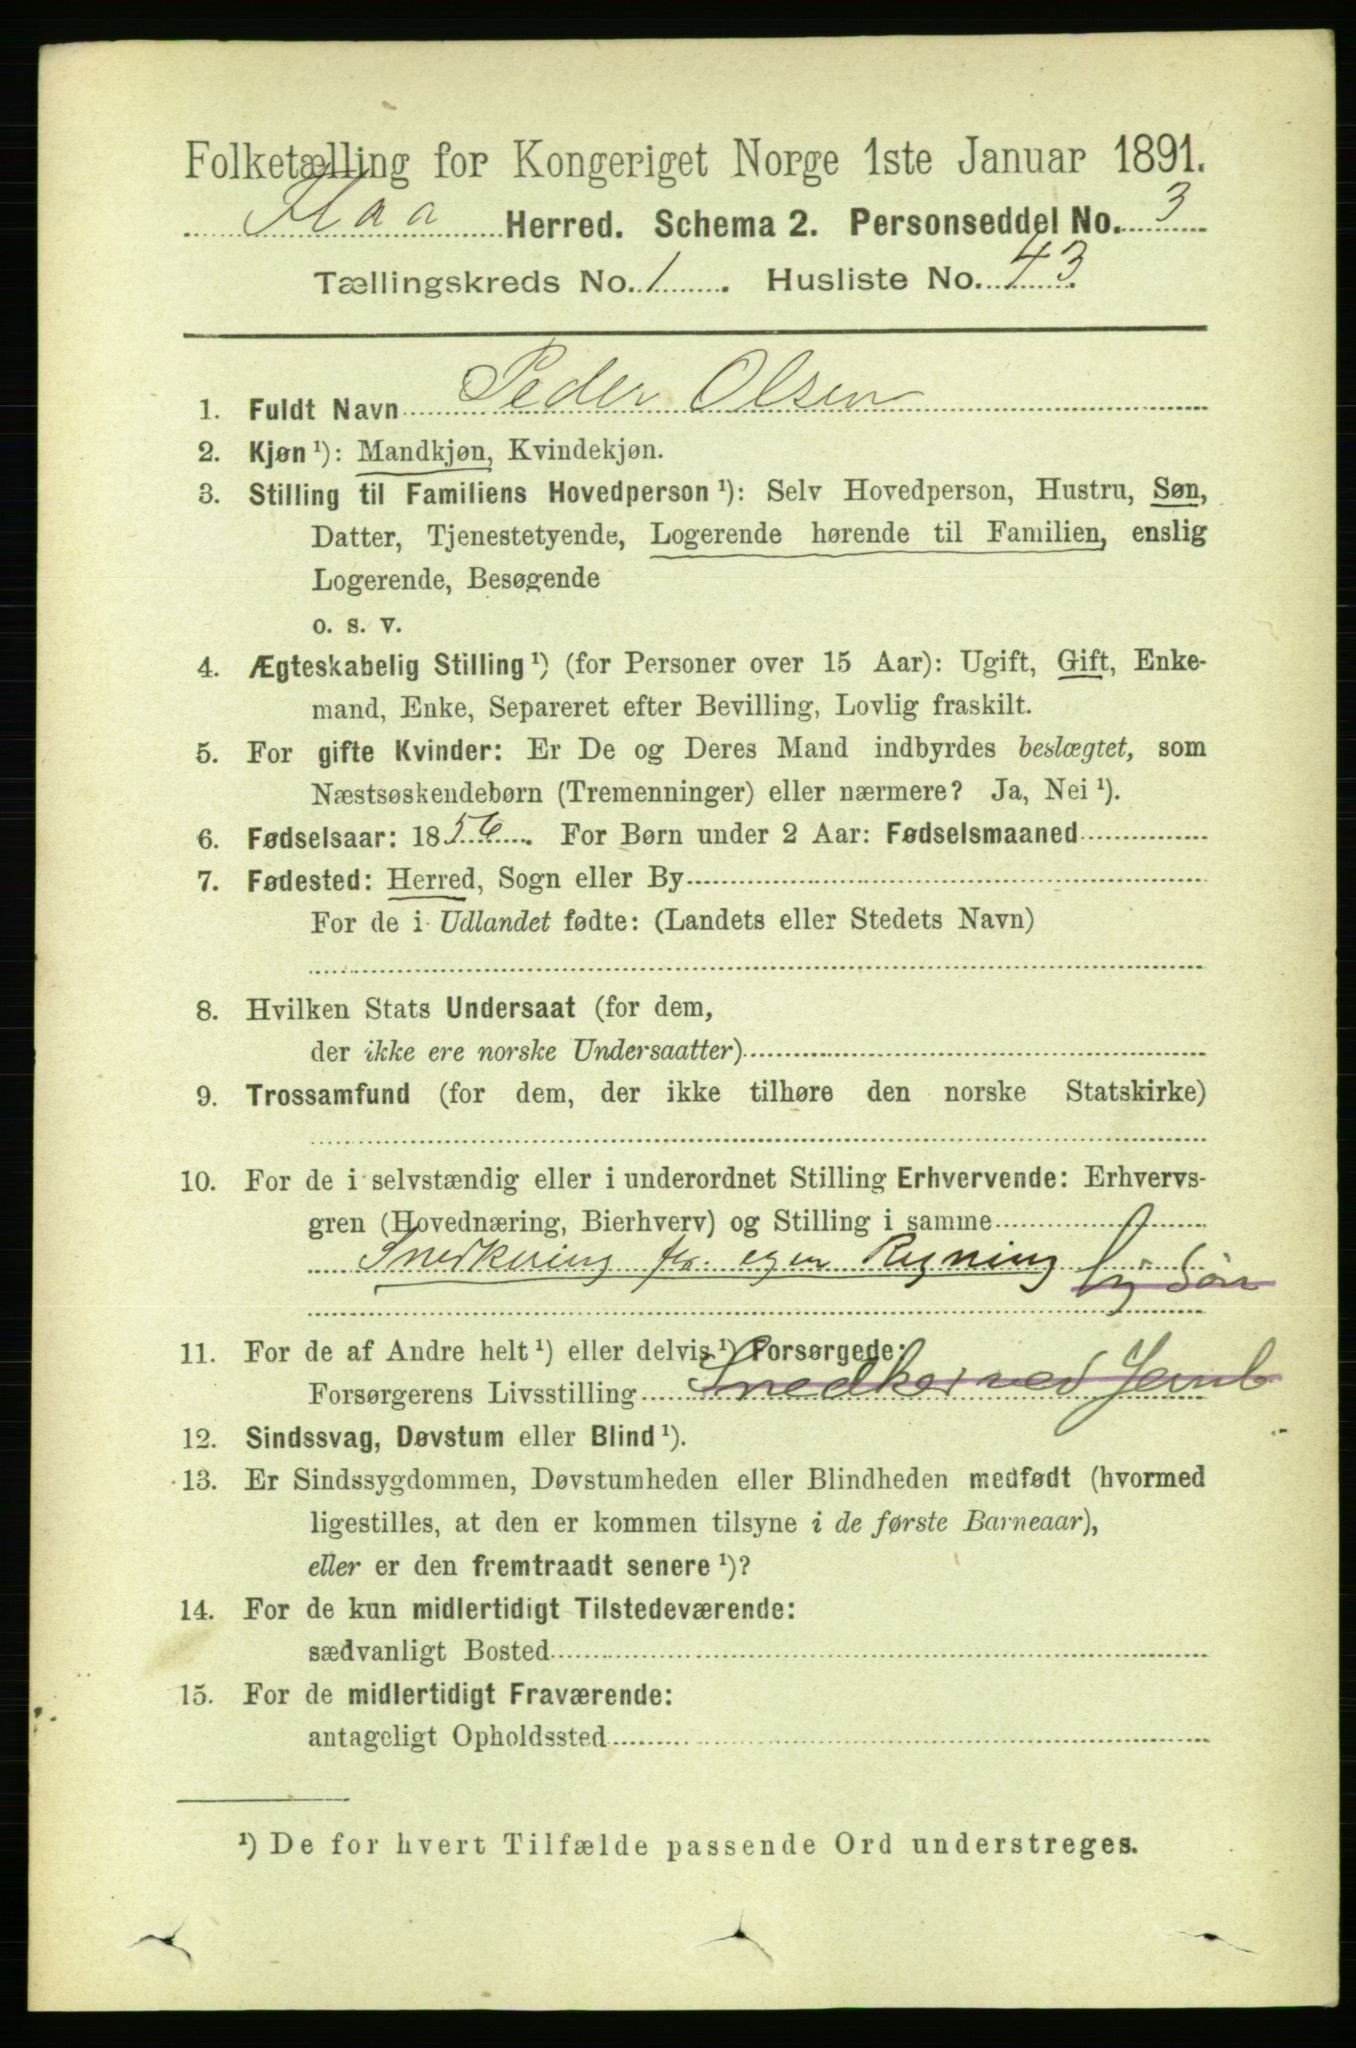 Folketælling for Kongeriget Norge 1ste Januar 1891.
Flaa Herred. Schema 2. Personseddel No. 3
Tællingskreds No. 1. Husliste No. 43.
1. Fuldt Navn Peder Olsen
2. Kjøn ¹): Mandkjøn, Kvindekjøn.
3. Stilling til Familiens Hovedperson ¹): Selv Hovedperson, Hustru, Søn,
Datter, Tjenestetyende, Logerende hørende til Familien, enslig
Logerende, Besøgende
o. s. v.
4. Ægteskabelig Stilling ¹) (for Personer over 15 Aar): Ugift, Gift, Enke-
mand, Enke, Separeret efter Bevilling, Lovlig fraskilt.
5. For gifte Kvinder: Er De og Deres Mand indbyrdes beslægtet, som
Næstsøskendebørn (Tremenninger) eller nærmere? Ja, Nei ¹).
6. Fødselsaar: 1856. For Børn under 2 Aar: Fødselsmaaned
7. Fødested: Herred, Sogn eller By
For de i Udlandet fødte: (Landets eller Stedets Navn)
8. Hvilken Stats Undersaat (for dem,
der ikke ere norske Undersaatter)
9. Trossamfund (for dem, der ikke tilhøre den norske Statskirke)
10. For de i selvstændig eller i underordnet Stilling Erhvervende: Erhvervs-
gren (Hovednæring, Bierhverv) og Stilling i samme
Snedkering for egen Regning
Søn
11. For de af Andre helt ¹) eller delvis ¹) Forsørgede:
Forsørgerens Livsstilling Snedker ved Jernb
12. Sindssvag, Døvstum eller Blind ¹).
13. Er Sindssygdommen, Døvstumheden eller Blindheden medfødt (hvormed
ligestilles, at den er kommen tilsyne i de første Barneaar),
eller er den fremtraadt senere ¹)?
14. For de kun midlertidigt Tilstedeværende:
sædvanligt Bosted
15. For de midlertidigt Fraværende:
antageligt Opholdssted
¹) De for hvert Tilfælde passende Ord understreges.